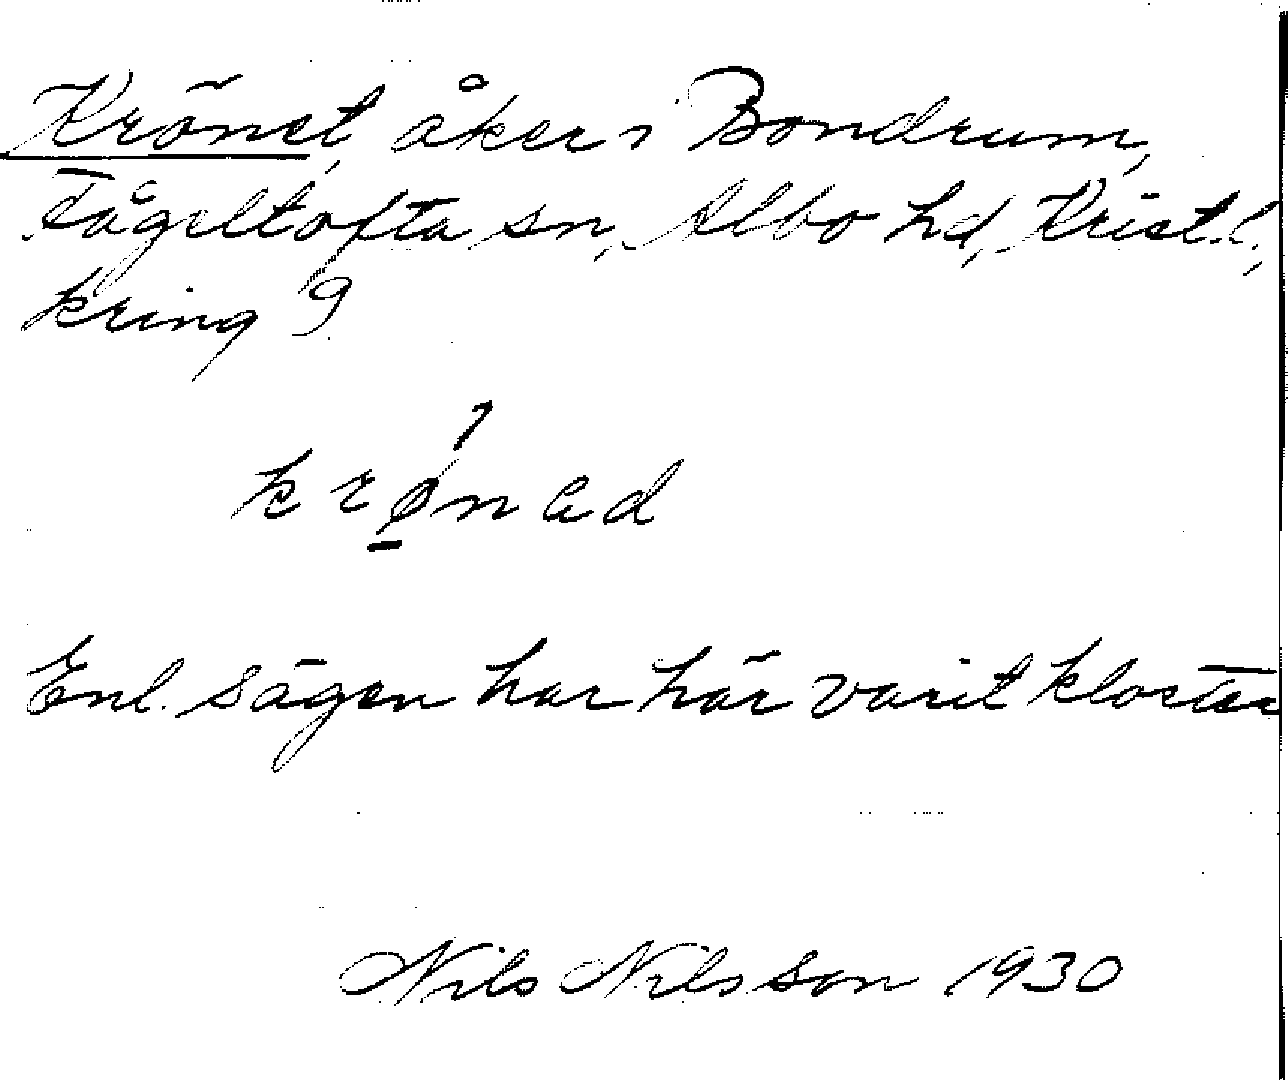 Krönet, åker i Bondrum,
Fågeltofta sn, Albo hd, Krist. l.,
kring 9
krǿ̲nad
Enl. sägen har här varit kloster
Nils Nilsson 1930